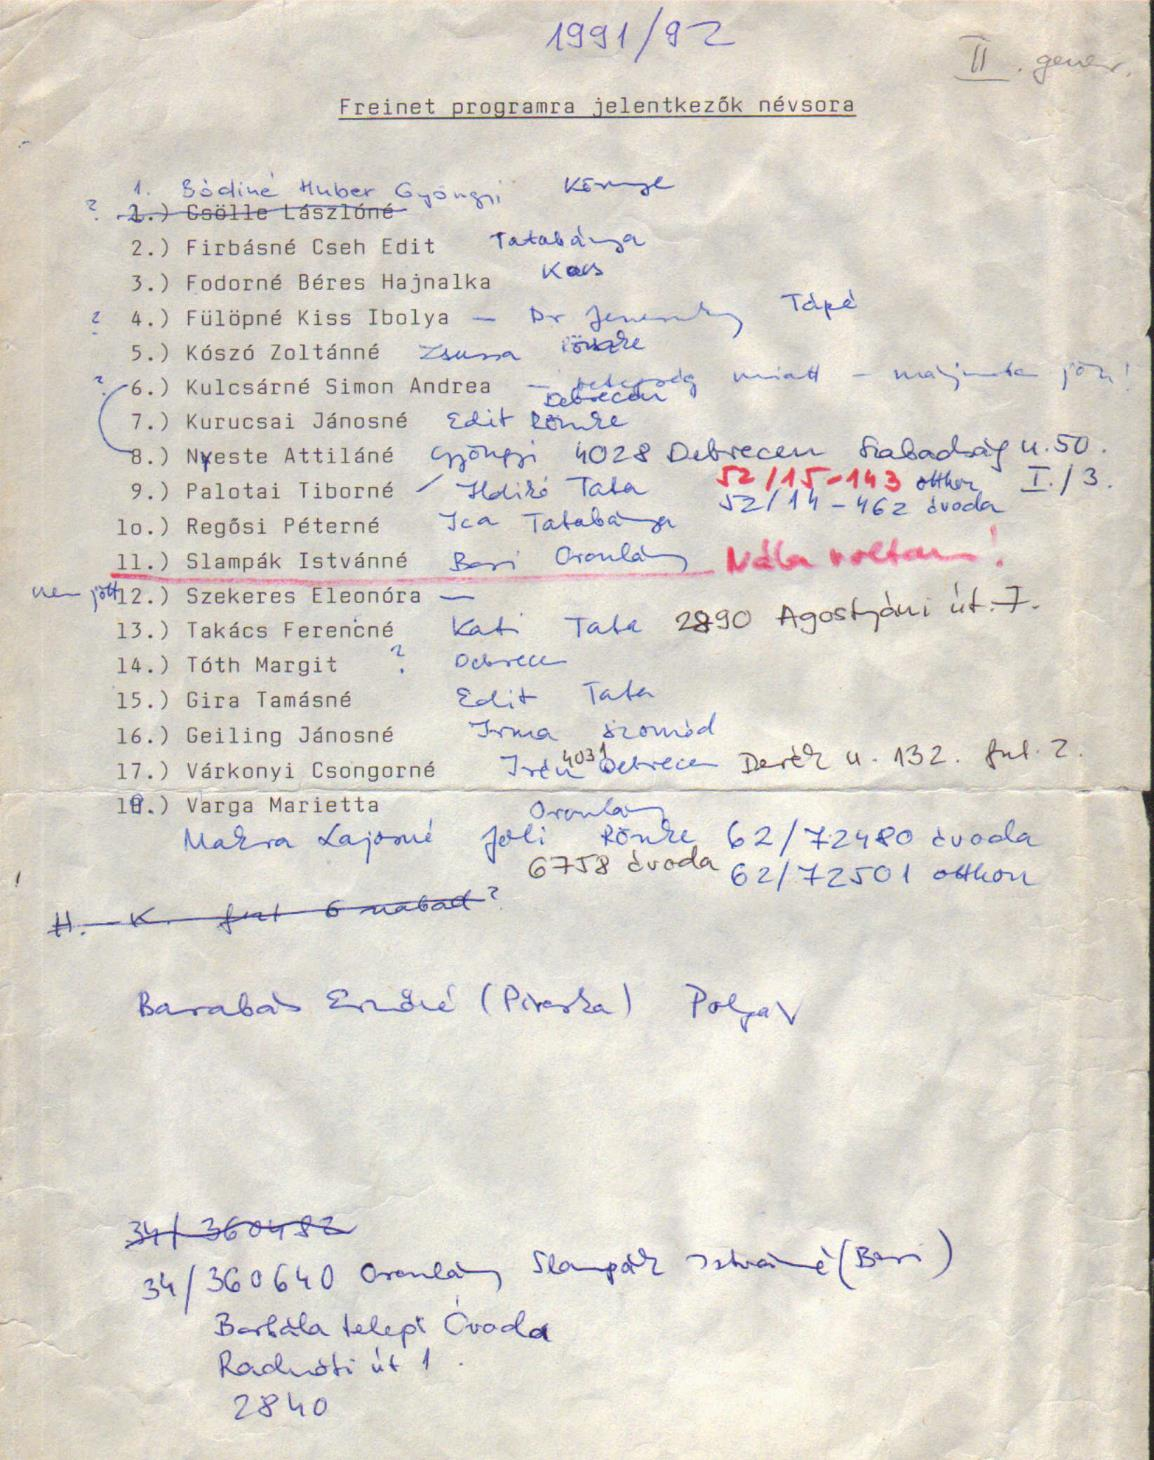 1991/92
II. gener.
Freinet programra jelentkezők névsora
1. Bódiné Huber Gyöngyi Környe
? 1.) Csölle Lászlóné
2.) Firbásné Cseh Edit Tatabánya
3.) Fodorné Béres Hajnalka Kocs
? 4.) Fülöpné Kiss Ibolya — Dr Tápé
5.) Kószó Zoltánné Zsuzsa Röszke
? 6.) Kulcsárné Simon Andrea — betegség miatt — jön!
Debrecen
7.) Kurucsai Jánosné Edit Röszke
8.) Nyeste Attiláné Gyöngyi 4028 Debrecen Szabadság u. 50.
9.) Palotai Tiborné Ildikó Tata 52/15-143 otthon I./3.
52/14-462 óvoda
1o.) Regősi Péterné Ica Tatabánya
11.) Slampák Istvánné Bori Oroszlány Nála voltam!
nem jött 12.) Szekeres Eleonóra —
13.) Takács Ferencné Kati Tata 2890 Agostyáni út. 7.
14.) Tóth Margit ? Debrecen
15.) Gira Tamásné Edit Tata
16.) Geiling Jánosné Irma Szomód
17.) Várkonyi Csongorné Irén 4031 Debrecen Derék u. 132. fszt. 2.
18.) Varga Marietta Oroszlány
Makra Lajosné Joli Röszke 62/72480 óvoda
6758 óvoda 62/72501 otthon
H. - K. 6 szabad?
Barabás Ernőné (Piroska) Polgár
34/360482
34/360640 Oroszlány Slampák Istvánné (Bori)
Borbála telepi Óvoda
Radnóti út 1.
2840